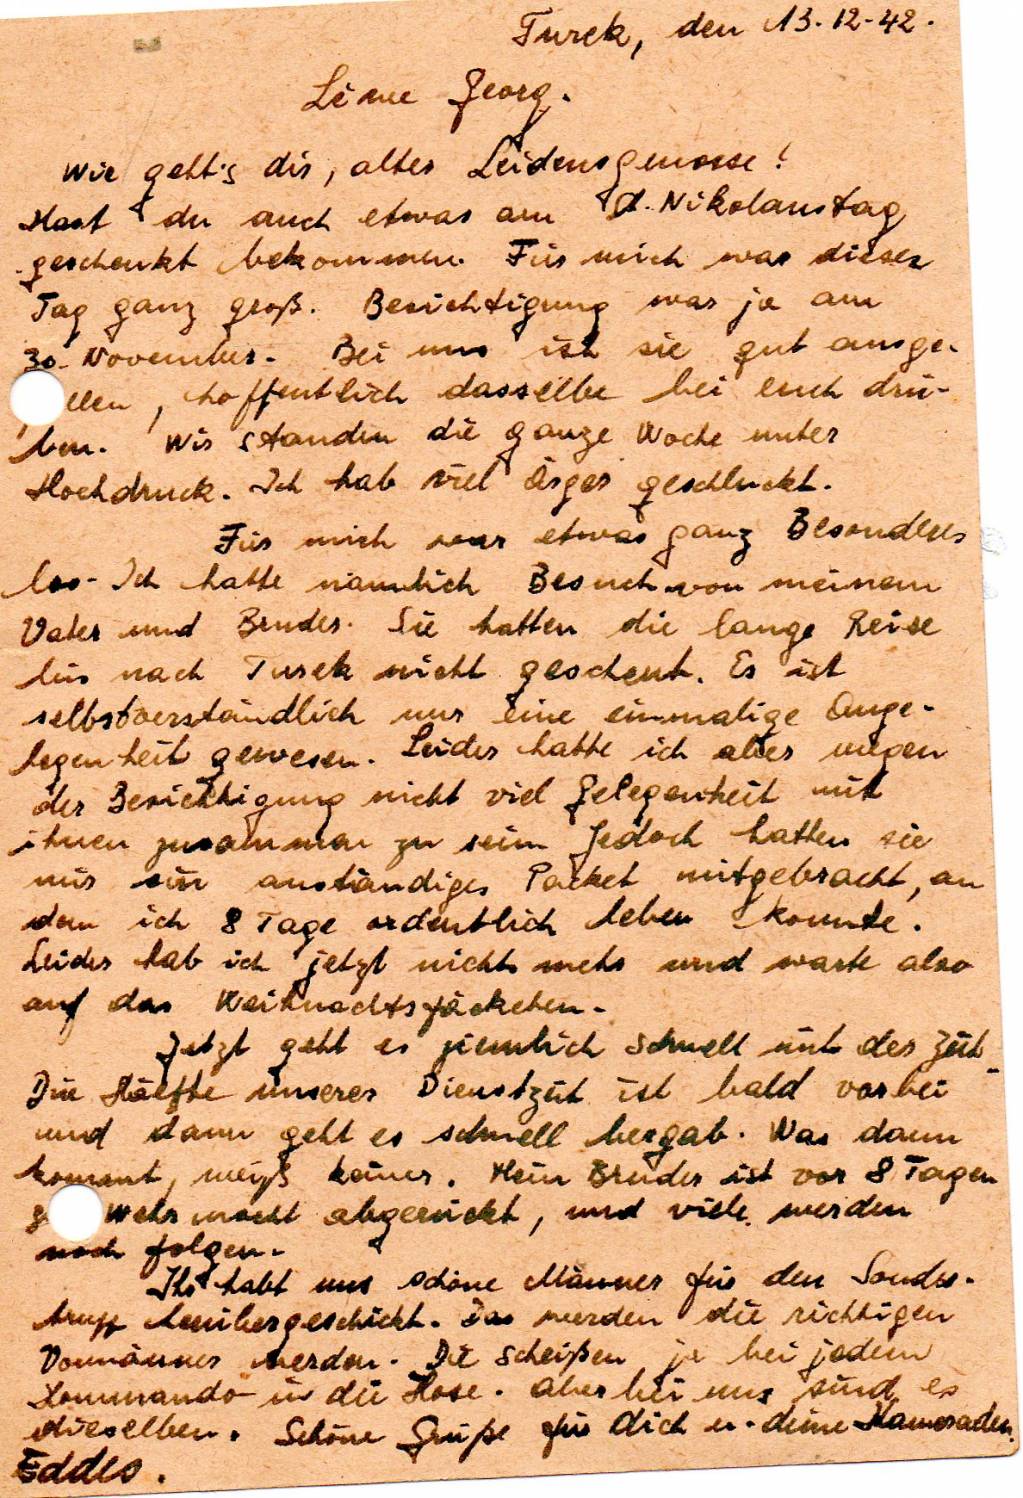 Turek, den 13.12-42.
Georg.
Wie geht's dir, alter Leidensgenosse!
Hast du auch etwas am St. Nikolaustag
geschenkt bekommen. Für mich war dieser
Tag ganz groß. Besichtigung war ja am
30. November. Bei uns ist sie gut ausge-
llen, hoffentlich dasselbe bei euch drü-
ben. Wir standen die ganze Woche unter
Hochdruck. Ich hab viel Ärger geschluckt.
Für mich war etwas ganz Besonderes
los. Ich hatte nämlich Besuch von meinem
Vater und Bruder. Sie hatten die lange Reise
bis nach Turek nicht gescheut. Es ist
selbstverständlich nur eine einmalige Ange-
legenheit gewesen. Leider hatte ich aber wegen
der Besichtigung nicht viel Gelegenheit mit
ihnen zusammen zu sein. Jedoch hatten sie
mir ein anständiges Packet mitgebracht, an
dem ich 8 Tage ordentlich leben konnte.
Leider hab ich jetzt nichts mehr und warte also
auf das Weihnachtspäckchen.
Jetzt geht es ziemlich schnell mit der Zeit.
Die Hälfte unserer Dienstzeit ist bald vorbei
und dann geht es schnell bergab. Was dann
kommt, weiß keiner. Mein Bruder ist vor 8 Tagen
z Wehrmacht abgerückt, und viele werden
noch folgen.
Ihr habt uns schöne Männer für den Sonder-
trupp herübergeschickt. Das werden die richtigen
werden. Die scheißen ja bei jedem
Kommando in die Hose. Aber bei uns sind es
dieselben. Schöne Grüße für dich u. deine Kameraden.